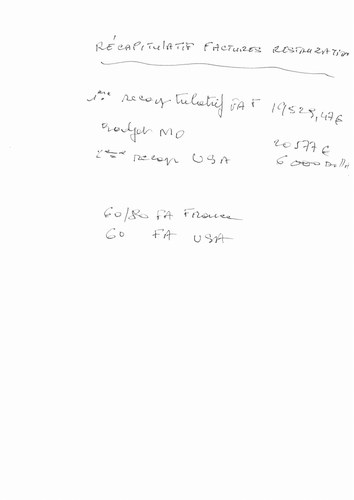 RÉCAPITULATIF FACTURES RESTAURATION
1ère recapitulatif FA F 19 525,47 €
Budget MO 20 577 €
2ème recap USA 6 000 Dolla
60/80 FA France
60 FA USA